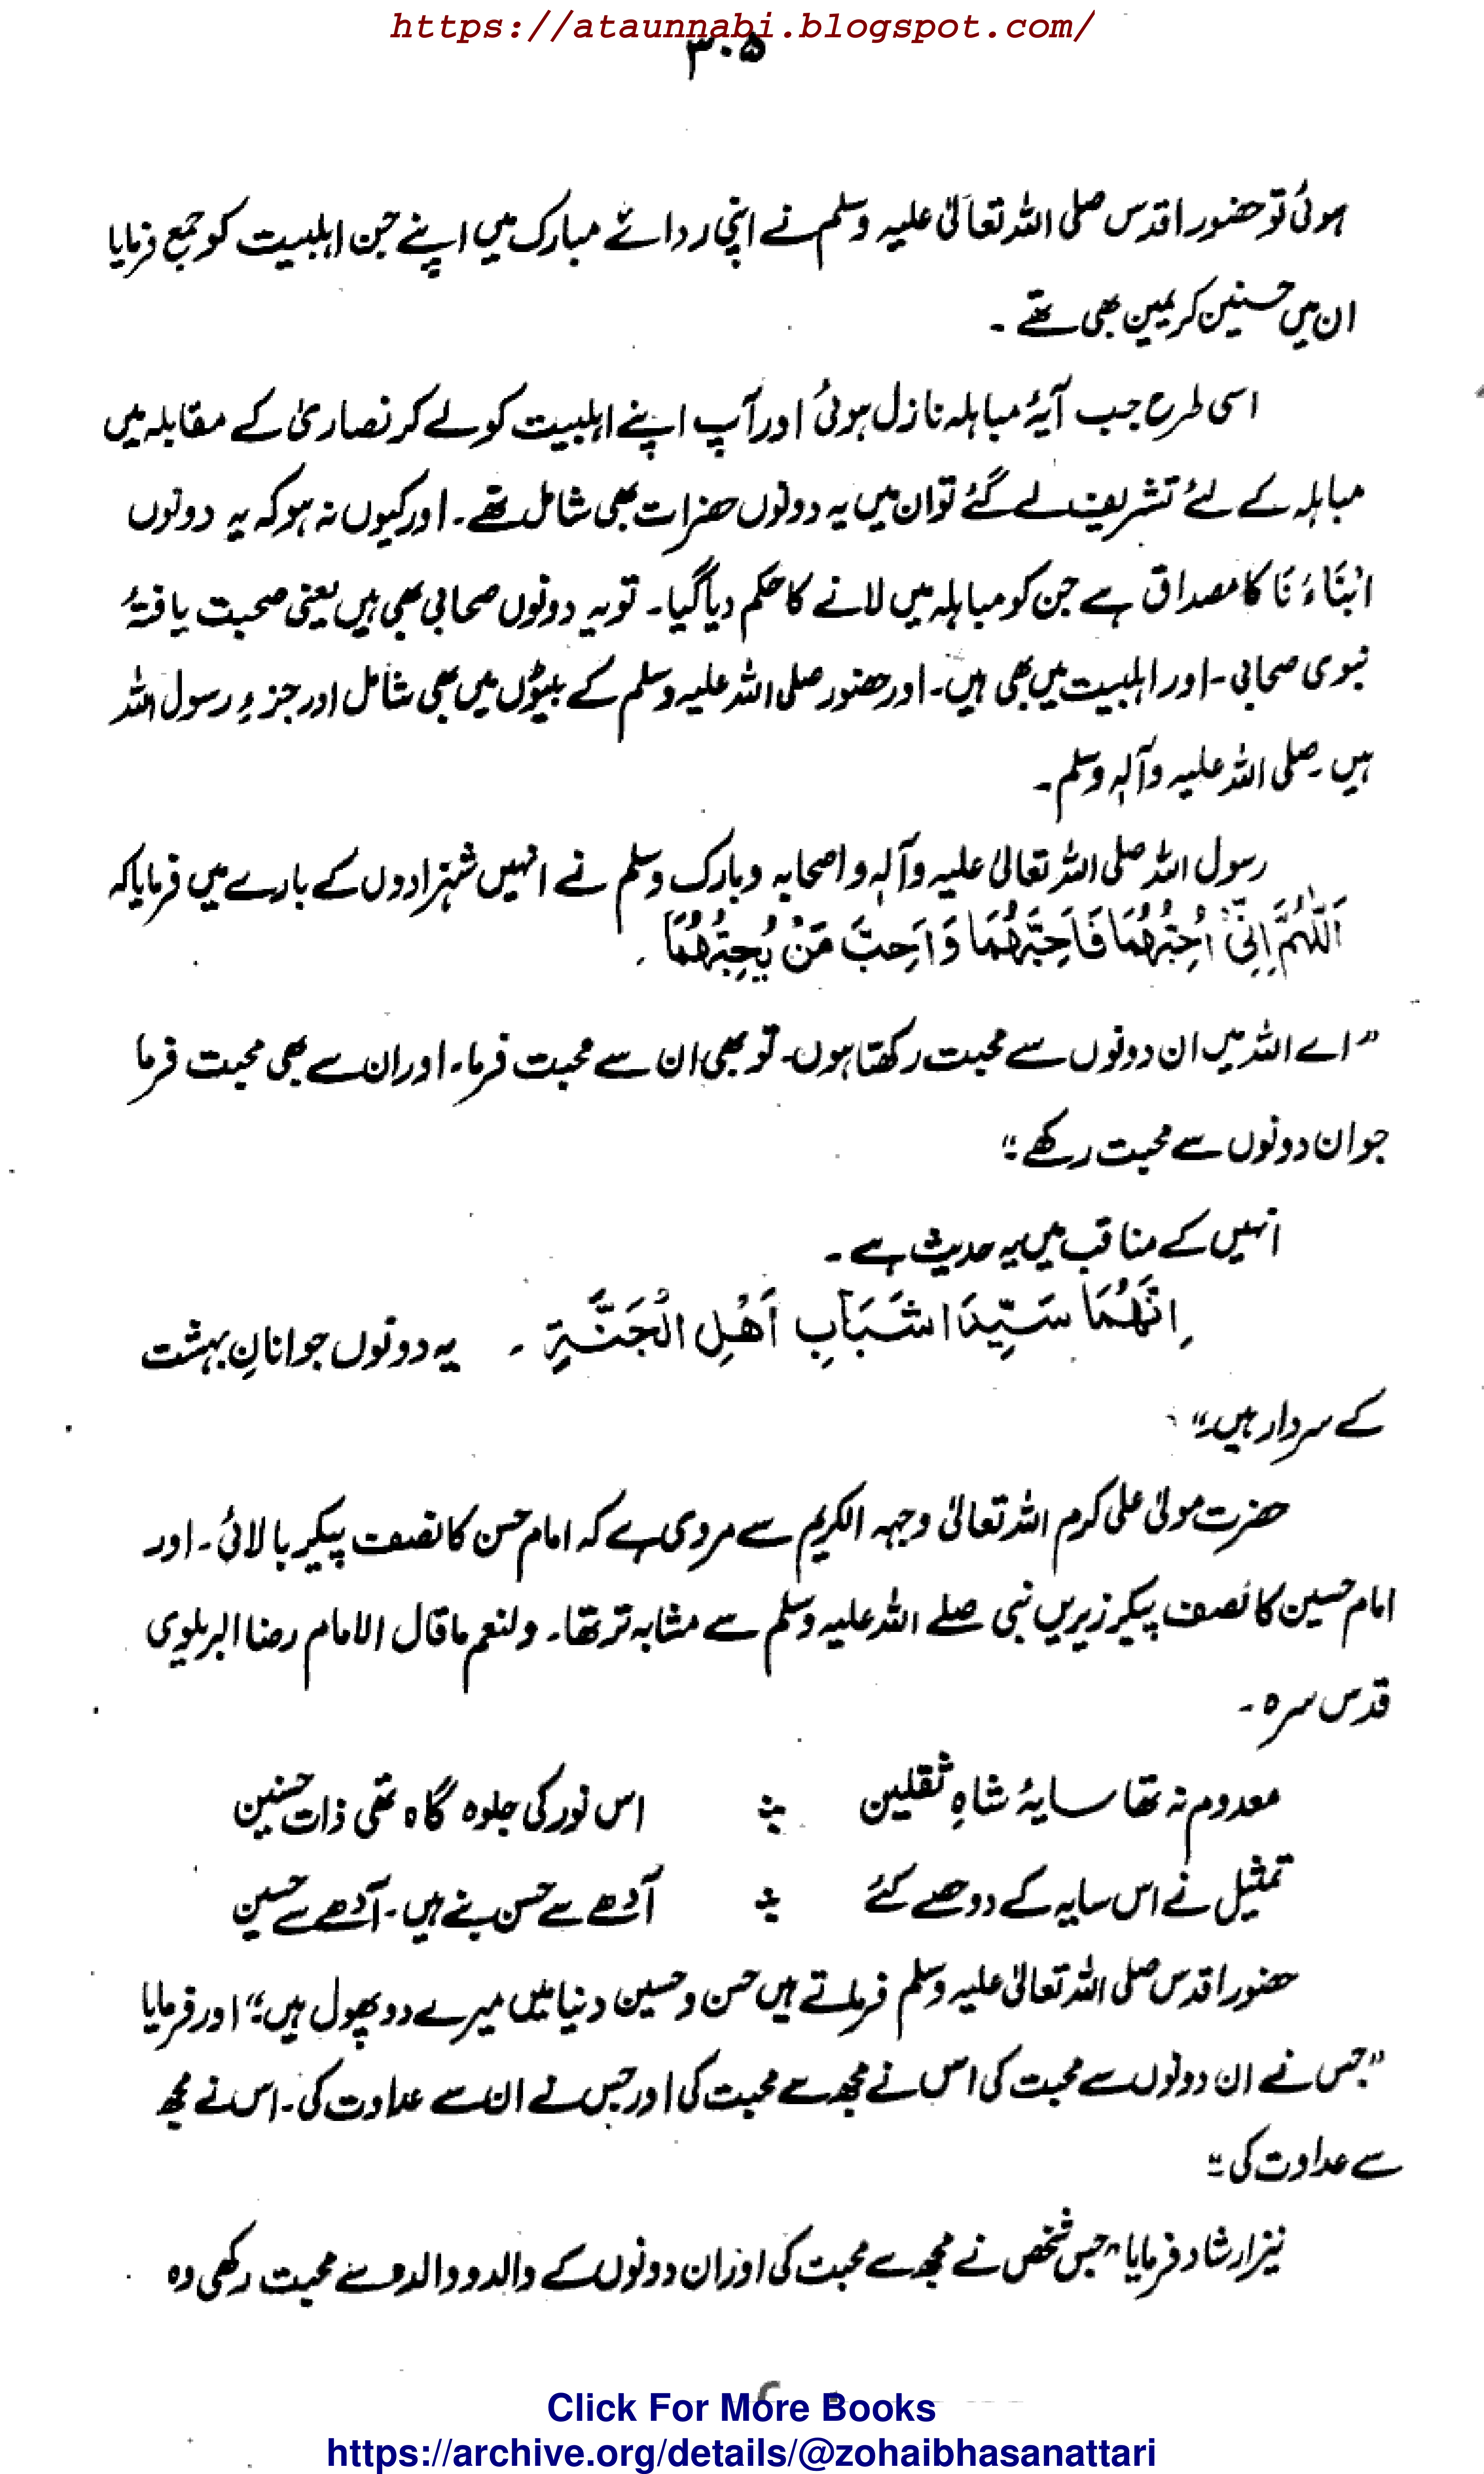 https://ataunnabi.blogspot.com/
۳۰۵
ہوئی تو حضور اقدس صلی اللہ تعالیٰ علیہ وسلم نے اپنی ردائے مبارک میں اپنے جن اہلبیت کو جمع فرمایا
ان میں حسنین کریمین بھی تھے ۔
اسی طرح جب آیۂ مباہلہ نازل ہوئی اور آپ اپنے اہلبیت کو لے کر نصاریٰ کے مقابلہ میں
مباہلہ کے لئے تشریف لے گئے تو ان میں یہ دونوں حضرات بھی شامل تھے ۔ اور کیوں نہ ہو کہ یہ دونوں
اَبْنَاءَنَا کا مصداق ہے جن کو مباہلہ میں لانے کا حکم دیا گیا ۔ تو یہ دونوں صحابی بھی ہیں یعنی صحبت یافتۂ
نبوی صحابی ۔ اور اہلبیت میں بھی ہیں ۔ اور حضور صلی اللہ علیہ وسلم کے بیٹوں میں بھی شامل اور جزءِ رسول اللہ
ہیں ۔ صلی اللہ علیہ وآلہٖ وسلم ۔
رسول اللہ صلی اللہ تعالیٰ علیہ وآلہٖ واصحابہ وبارک وسلم نے انہیں شہزادوں کے بارے میں فرمایا کہ
اَللّٰهُمَّ اِنِّیْ اُحِبُّهُمَا فَاَحِبَّهُمَا وَاَحِبَّ مَنْ یُحِبُّهُمَا ۔
"اے اللہ میں ان دونوں سے محبت رکھتا ہوں ۔ تو بھی ان سے محبت فرما ۔ اور ان سے بھی محبت فرما
جو ان دونوں سے محبت رکھے ۔"
انہیں کے مناقب میں یہ حدیث ہے ۔
اِنَّهُمَا سَیِّدَا شَبَابِ اَهْلِ الْجَنَّةِ ۔ یہ دونوں جوانانِ بہشت
کے سردار ہیں ۔"
حضرت مولیٰ علی کرم اللہ تعالیٰ وجہہ الکریم سے مروی ہے کہ امام حسن کا نصف پیکر بالائی ۔ اور
امام حسین کا نصف پیکر زیریں نبی صلے اللہ علیہ وسلم سے مشابہ تر تھا ۔ ولنعم ما قال الامام رضا البریلوی
قدس سرہ ۔
معدوم نہ تھا سایۂ شاہِ ثقلین ؞ اس نور کی جلوہ گاہ تھی ذات حسنین
تمثیل نے اس سایہ کے دو حصے کئے ؞ آدھے سے حسن بنے ہیں ۔ آدھے سے حسین
حضور اقدس صلی اللہ تعالیٰ علیہ وسلم فرماتے ہیں حسن و حسین دنیا میں میرے دو پھول ہیں ۔" اور فرمایا
"جس نے ان دونوں سے محبت کی اس نے مجھ سے محبت کی اور جس نے ان سے عداوت کی ۔ اس نے مجھ
سے عداوت کی ۔"
نیز ارشاد فرمایا "جس شخص نے مجھ سے محبت کی اور ان دونوں کے والد و والدہ سے محبت رکھی وہ
Click For More Books
https://archive.org/details/@zohaibhasanattari